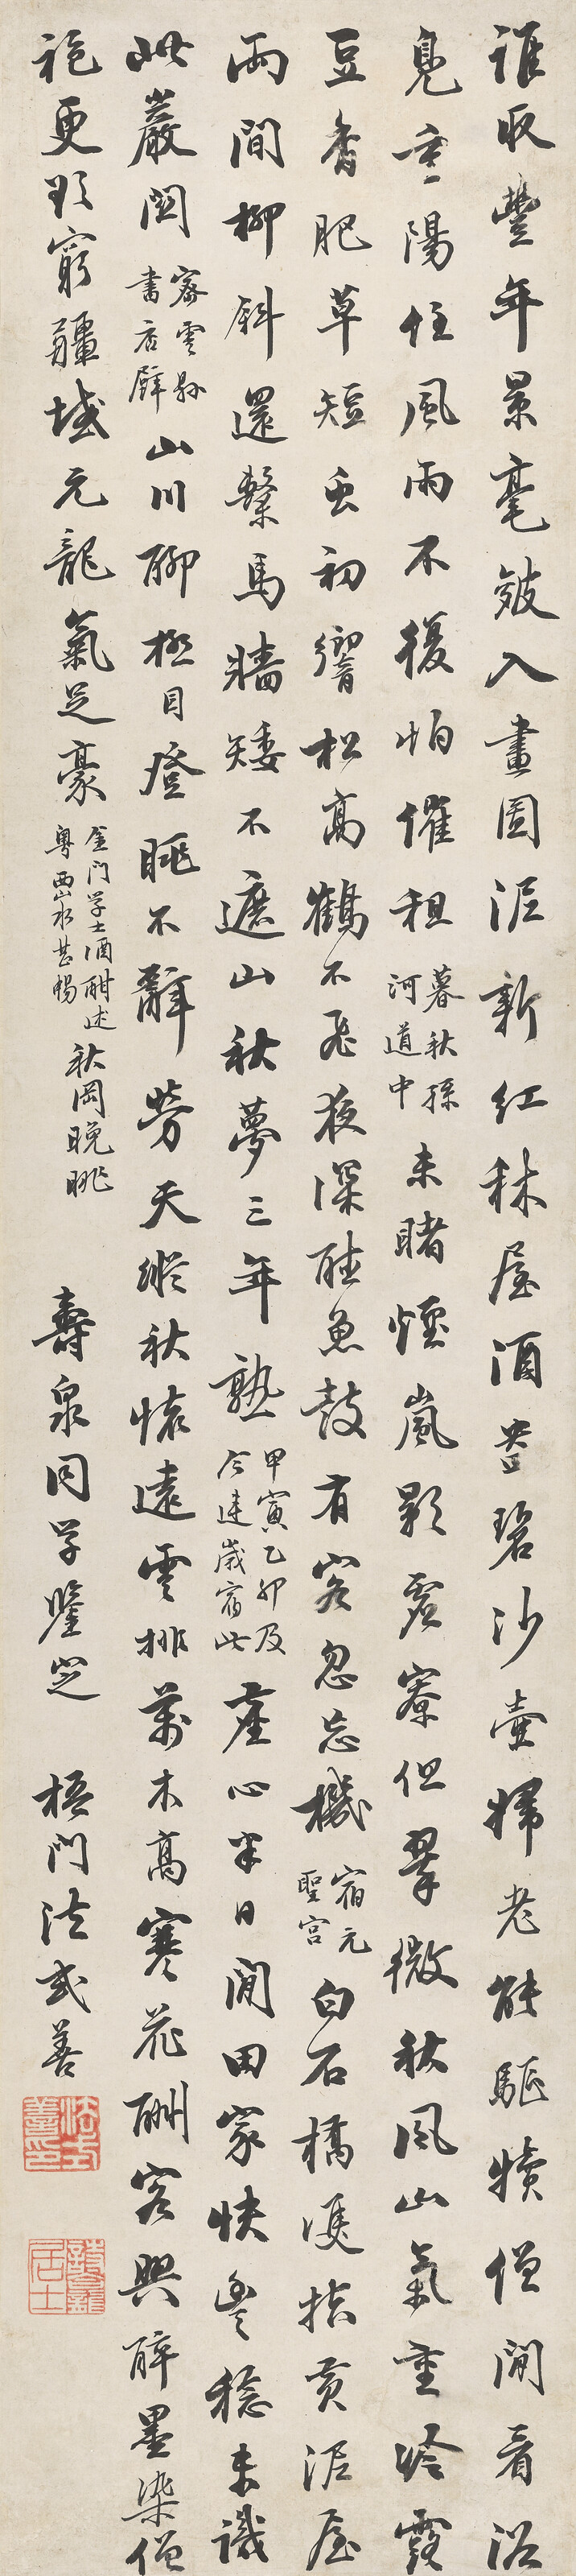 誰收豐年景毫皴入畫圖泥新紅秫屋酒香碧沙壺婦老能驅犢僧閒看浴
鳧重陽任風雨不復怕催租暮秋孫河道中未睹煙嵐影虛寮但翠微秋風山氣重冷露
豆香肥草短虫初響松高鶴不飛夜深酣魚鼓有客忽忘機宿元聖宮白石橋邊括黃泥屋
兩間柳斜還繫馬牆矮不遮山秋夢三年熟甲寅乙卯及今連歲宿此塵心半日閒田家快豐稔未識
此巖關密雲縣書店壁山川聊極目登眺不辭勞天縱秋懷遠雲排萬木高寒花酬客興醉墨染僧
袍更欲窮疆域元龍氣足豪金門學士酒酣述粵西山水甚暢秋岡晚眺
壽泉同學鑒定
梧門法式善
法式善印
詩龕居士